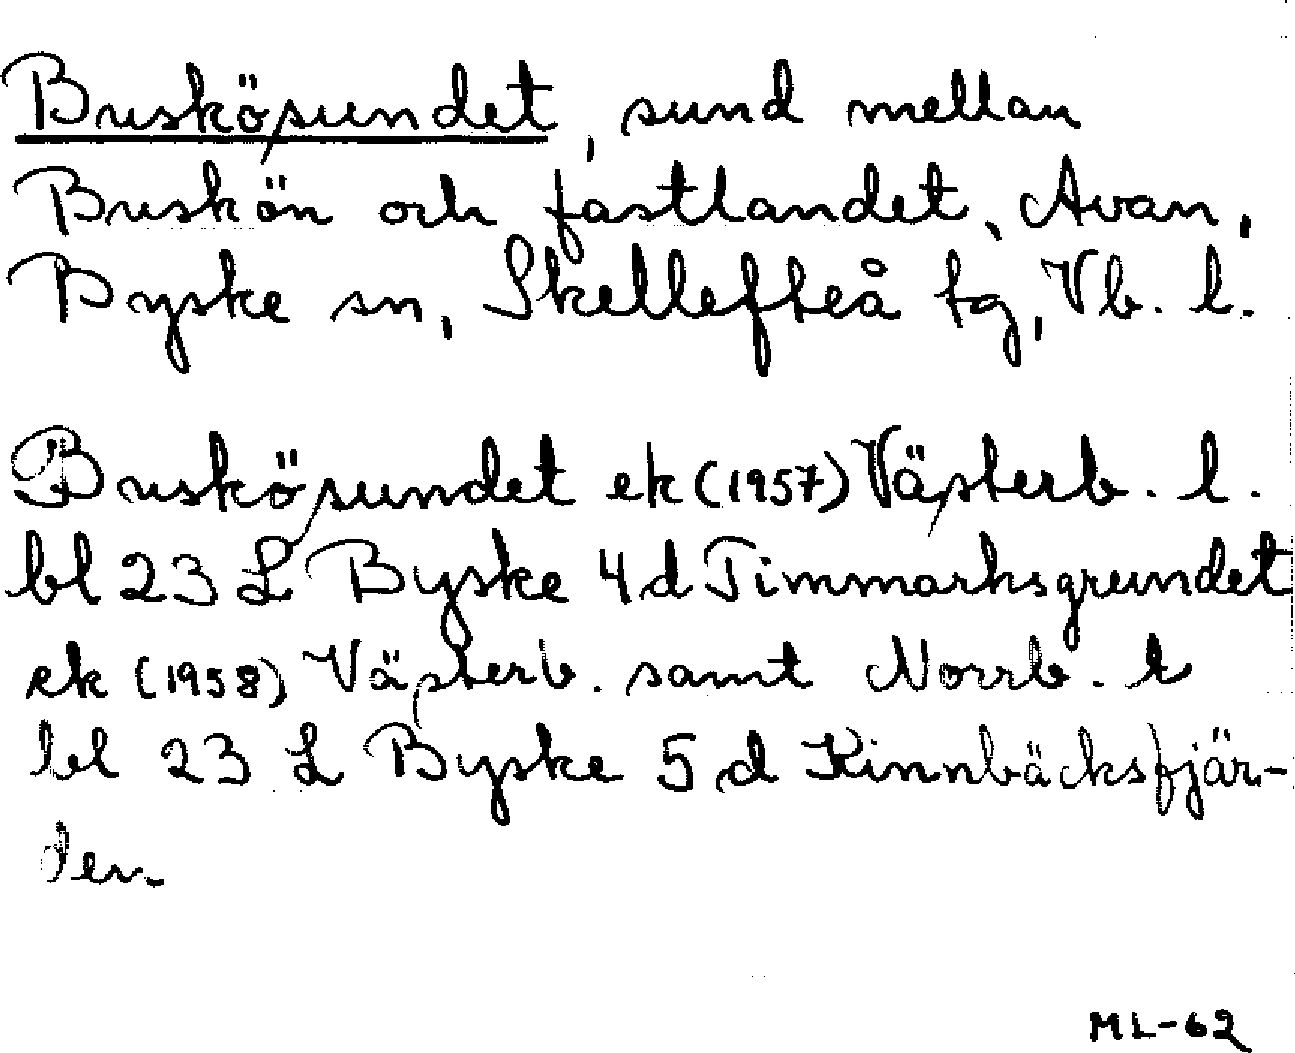 Buskösundet, sund mellan
Buskön och fastlandet, Avan,
Byske sn, Skellefteå tg, Vb. l.
Buskösundet ek (1957) Västerb. l.
bl 23 L Byske 4 d Timmarksgrundet
ek (1958) Västerb. samt Norrb. l
bl 23 L Byske 5 d Kinnbäcksfjär-
den
ML-62